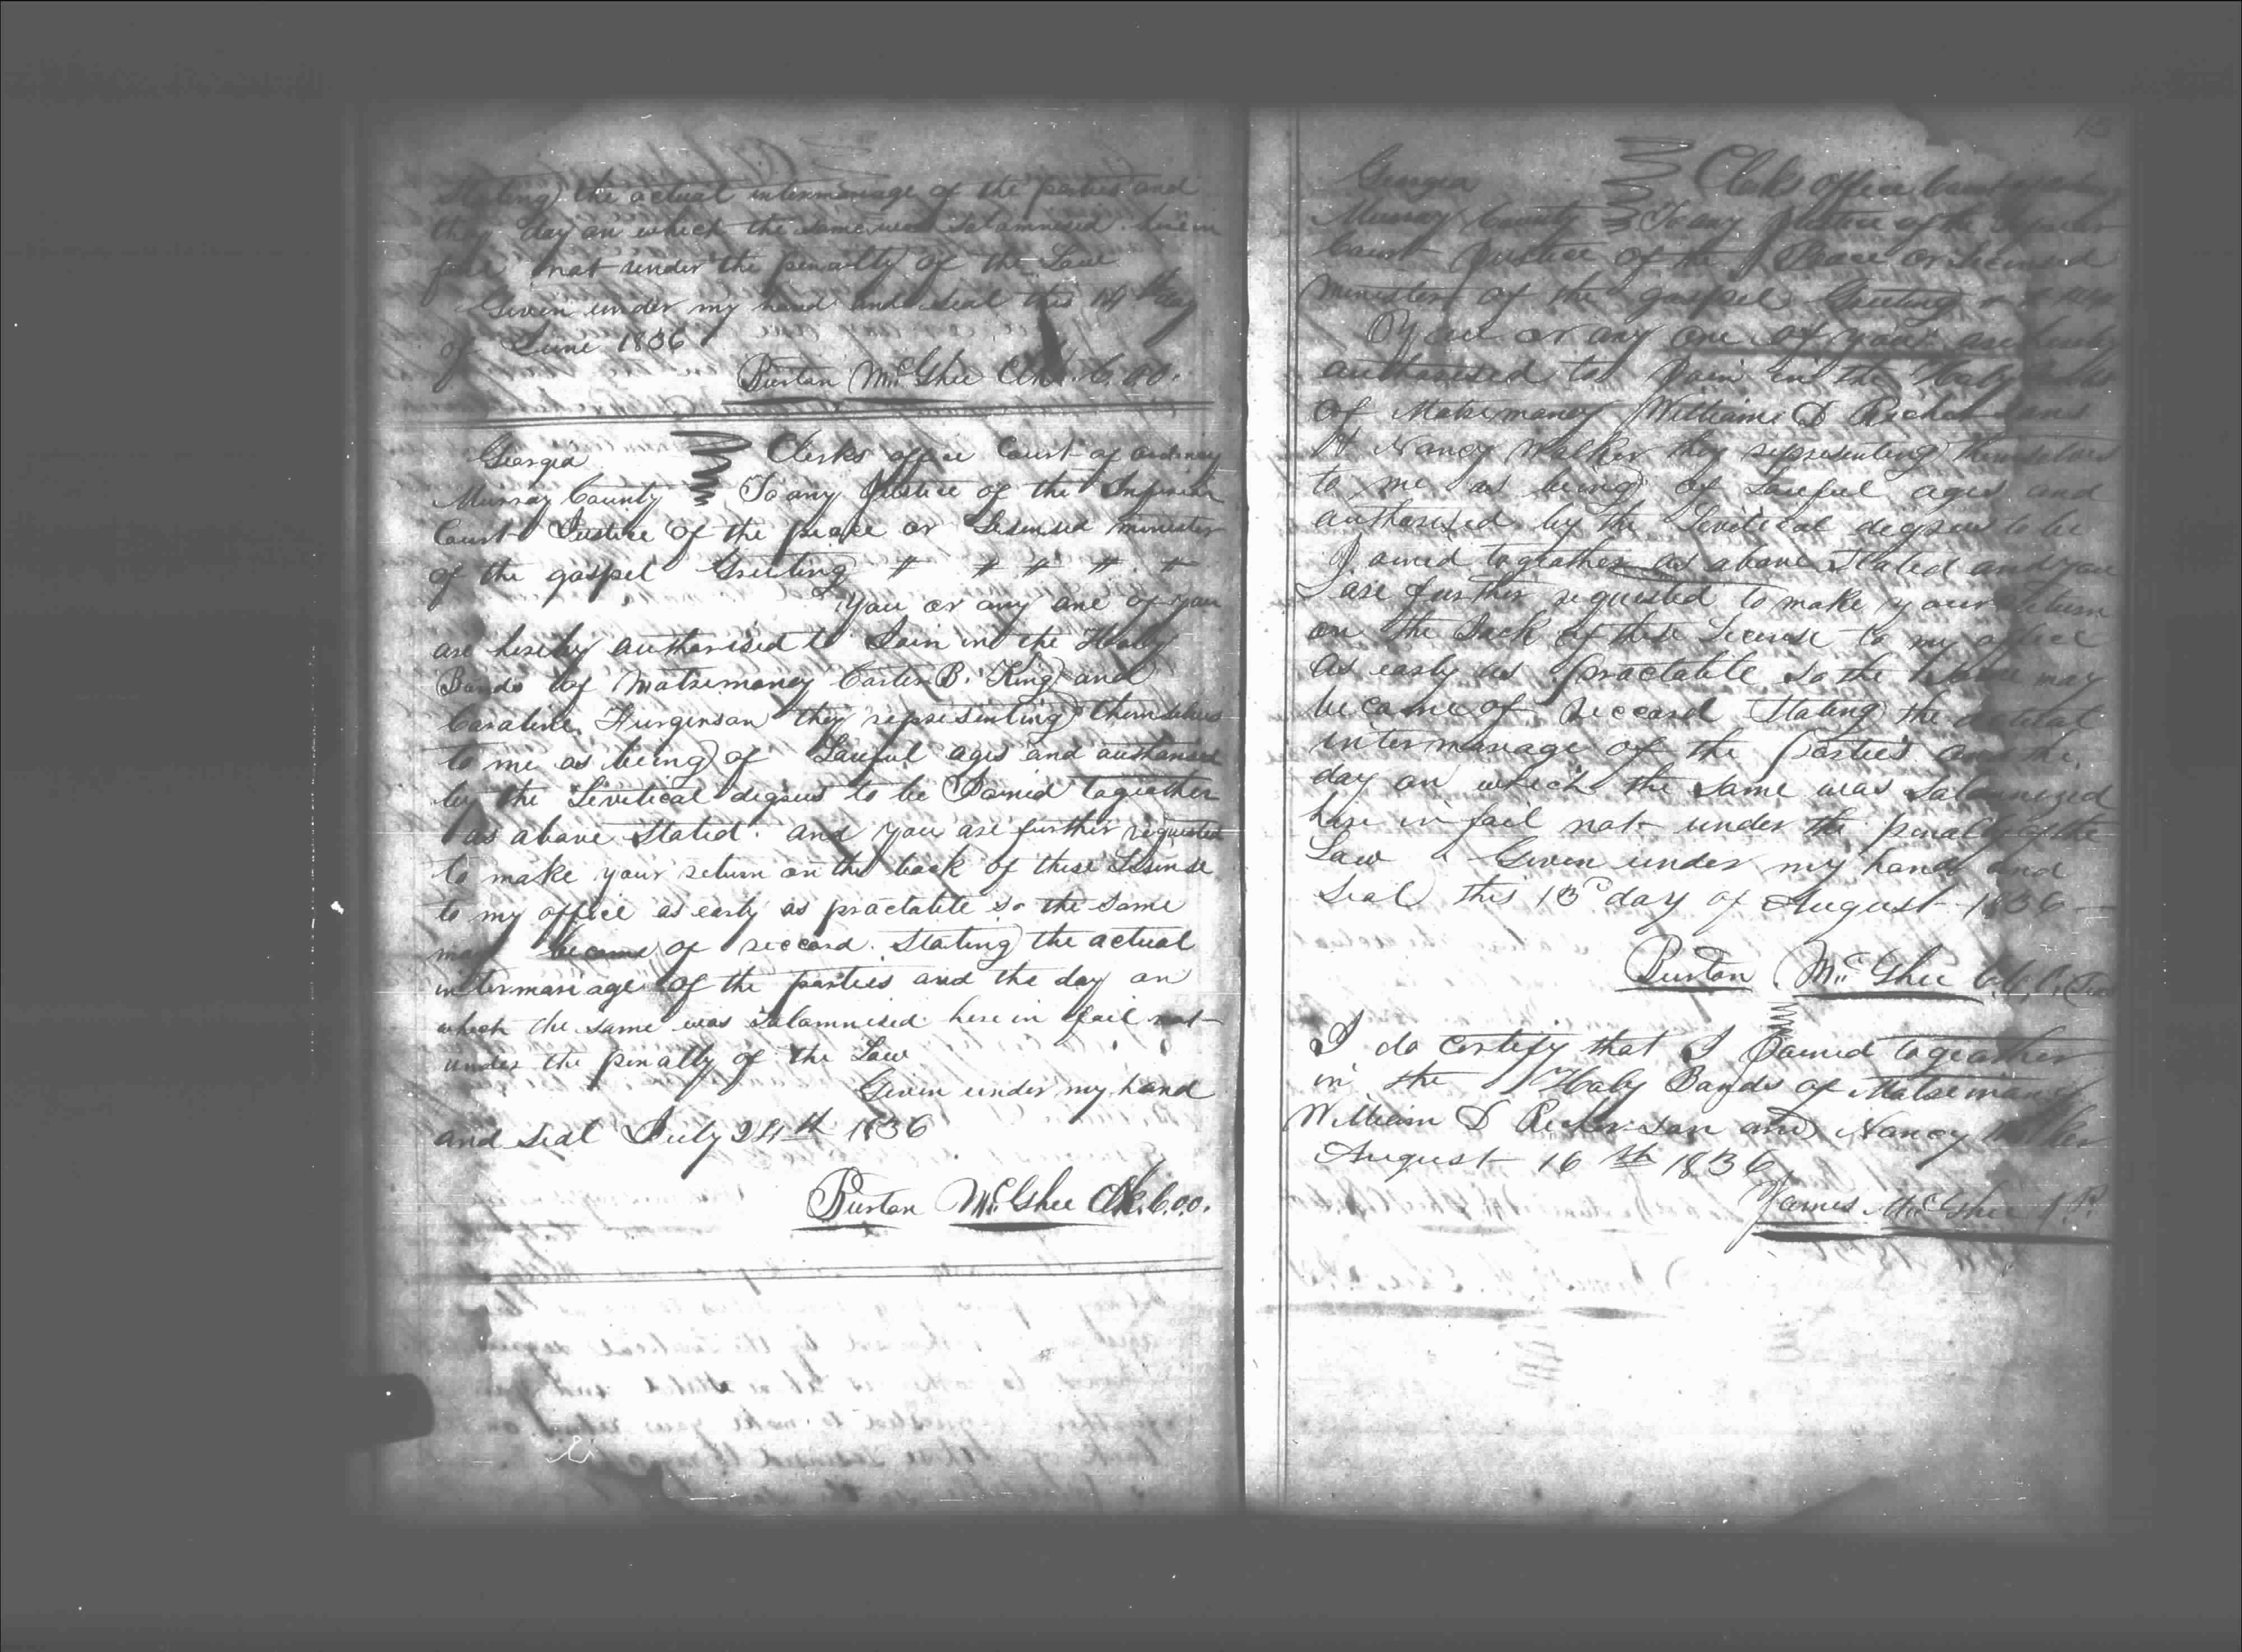 Stating the actual intermarriage of the parties and
the day on which the same was Solamnised herein
fail not under the penalty of the Law
Given under my hand and Seal this 14th day
of June 1836
Burton McGhee Clk. C.O.O.
Georgia Clerks office Court of ordinary
Murray County To any Justice of the Inferior
Court Justice of the peace or Lisensed minister
of the gospel Greeting # # # # #
You or any one of you
are hereby authorised to Join in the Holy
Bands of Matremoney Carter B. King and
Caroline they representing themselves
to me as being of Lawful ages and authorised
by the Levitical degrees to be Joined togeather
as above Stated. and you are further requested
to make your return on the back of these Lisense
to my office as early as practable so the same
may become of reccord. Stating the actual
intermariage of the parties and the day on
which the same was Solamnised herein fail not
under the penalty of the Law
Given under my hand
and Seal July 24th 1836
Burton McGhee Clk. C.O.O.
13
Georgia Clerks office Court of
Murray County To any Justice of the Inferior
Court Justice of the Peace or Licensed
Minister of the gospel Greeting
You or any one of you are hereby
authorised to Join in the Holy
of Matremoney William D
Nancy Walker they representing themselves
to me as being of Lawful ages and
authorised by the Levitical degrees to be
Joined togeather as above Stated and you
are further requested to make your return
on the Back of these License to my office
as early as practable so the Same may
become of Reccord Stating the actual
intermarage of the parties and the
day on which the same was Salamnized
here in fail not under the penalty of the
Law Given under my hand and
Seal this 13 day of August 1836
Burton McGhee C.C.O.
I do certify that I Joined togeather
in the Holy Bands of Matremoney
William D and Nancy Walker
August 16th 1836
James McGhee J.P.